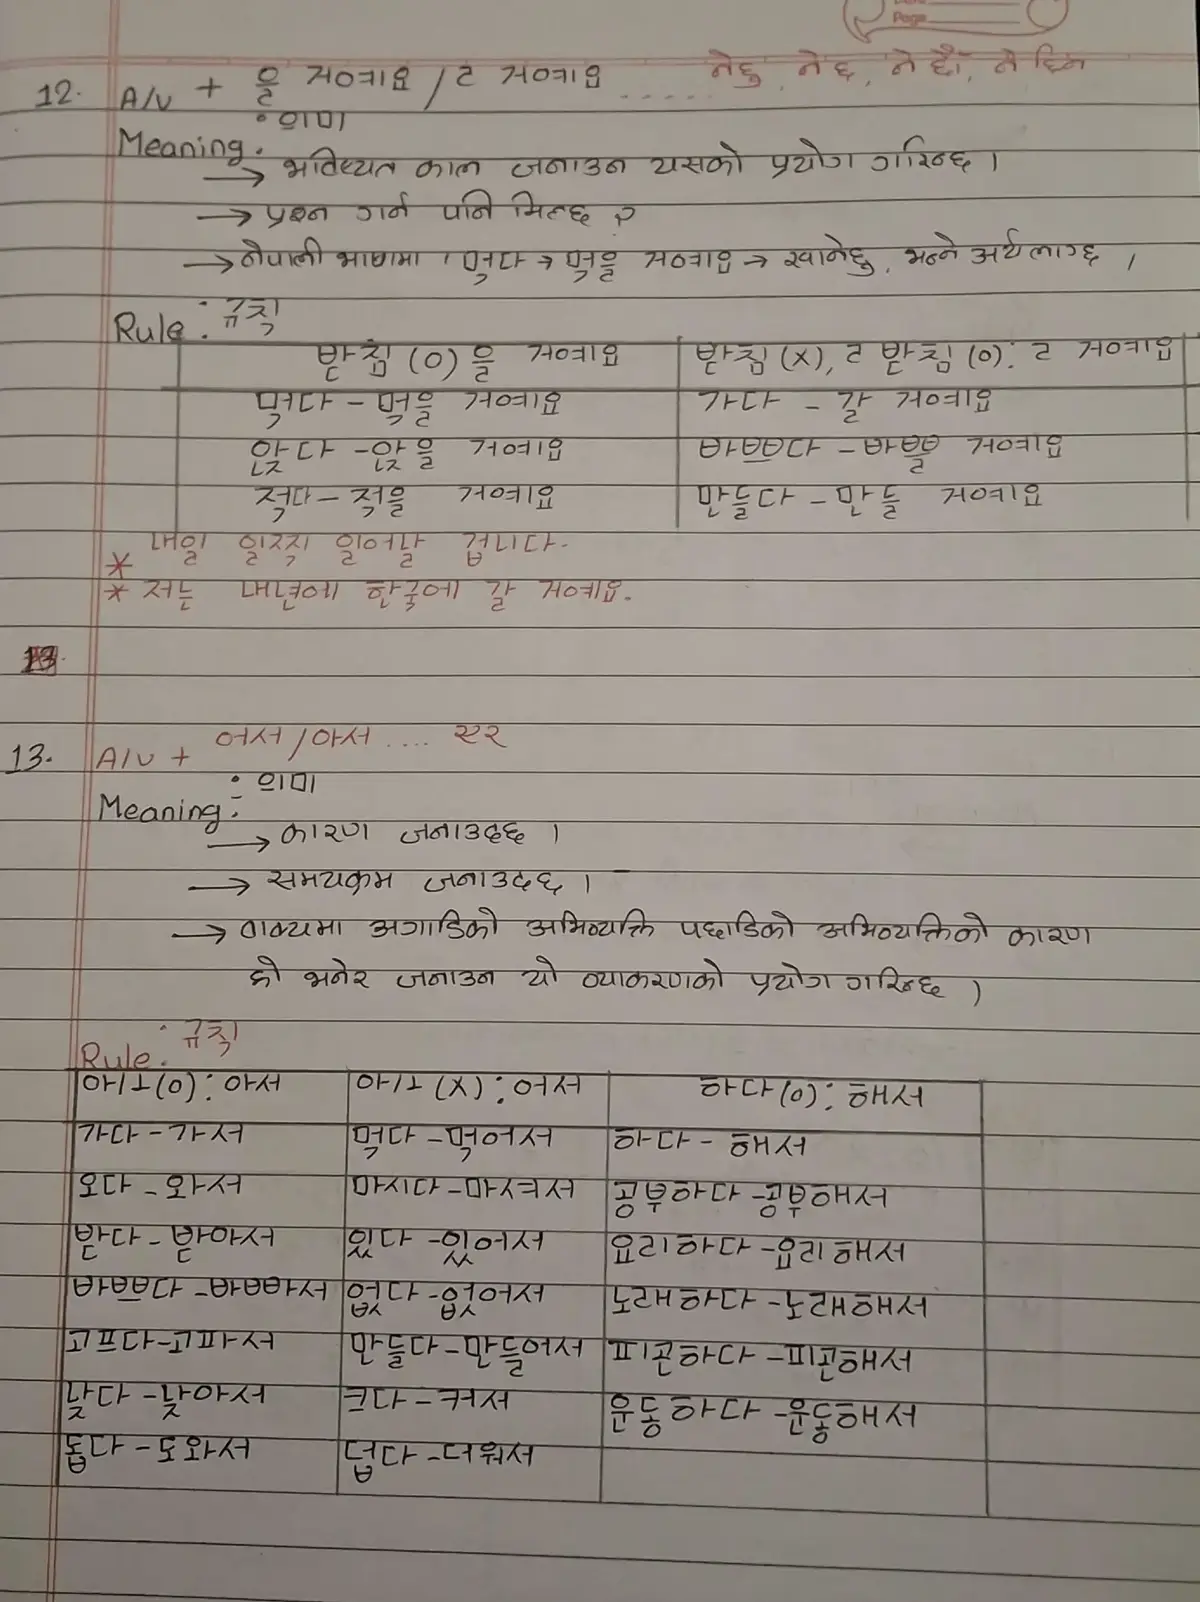 Page
12. A/V + 을 거예요 / ㄹ 거예요 ..... नेछु, नेछ, नेछौं, नेछिन
Meaning: 의미
→ भविष्यत काल जनाउन यसको प्रयोग गरिन्छ ।
→ प्रश्न गर्न पनि मिल्छ ?
→ नेपाली भाषामा, 먹다 → 먹을 거예요 → खानेछु, भन्ने अर्थ लाग्छ ।
Rule: 규칙
받침 (O) 을 거예요 받침 (X), ㄹ 받침 (O): ㄹ 거예요
먹다 - 먹을 거예요 가다 - 갈 거예요
있다 - 있을 거예요 바쁘다 - 바쁠 거예요
적다 - 적을 거예요 만들다 - 만들 거예요
* 내일 일찍 일어날 겁니다.
* 저는 내년에 한국에 갈 거예요.
13.
13. A/V + 어서/아서 .... एर
Meaning: 의미
→ कारण जनाउदछ ।
→ समयक्रम जनाउदछ ।
→ वाक्यमा अगाडिको अभिव्यक्ति पछाडिको अभिव्यक्तिको कारण
हो भनेर जनाउन यो व्याकरणको प्रयोग गरिन्छ ।
Rule: 규칙
ㅏ/ㅗ (O): 아서 ㅏ/ㅗ (X): 어서 하다 (O): 해서
가다 - 가서 먹다 - 먹어서 하다 - 해서
마시다 - 마셔서 공부하다 - 공부해서
있다 - 있어서 요리하다 - 요리해서
바쁘다 - 바빠서 없다 - 없어서 노래하다 - 노래해서
고프다 - 고파서 만들다 - 만들어서 피곤하다 - 피곤해서
작다 - 작아서 크다 - 커서 운동하다 - 운동해서
돕다 - 도와서 덥다 - 더워서